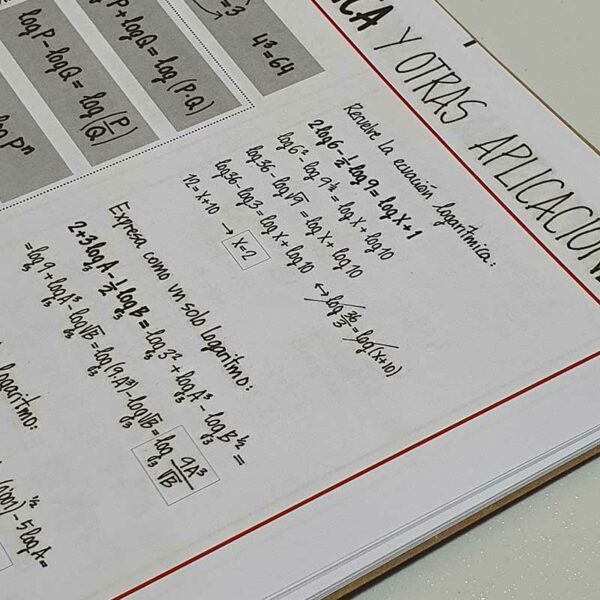 ICA Y OTRAS APLICACIONE
=3
4³=64
P+logQ=log(P·Q)
logP-logQ=log(P/Q)
log pⁿ
Resuelve la ecuación logarítmica:
2log6-½log9=logx+1
log6²-log9^½=logx+log10
log36-log√9=logx+log10
log36-log3=logx+log10 ↔ log 36/3=log(x+10)
12=x+10 → x=2
Expresa como un solo logaritmo:
2+3log₃A-½log₃B=log₃3²+log₃A³-log₃B^½=
=log₃9+log₃A³-log₃√B=log₃(9·A³)-log₃√B=log₃ 9A³/√B
logaritmo:
-5logA=